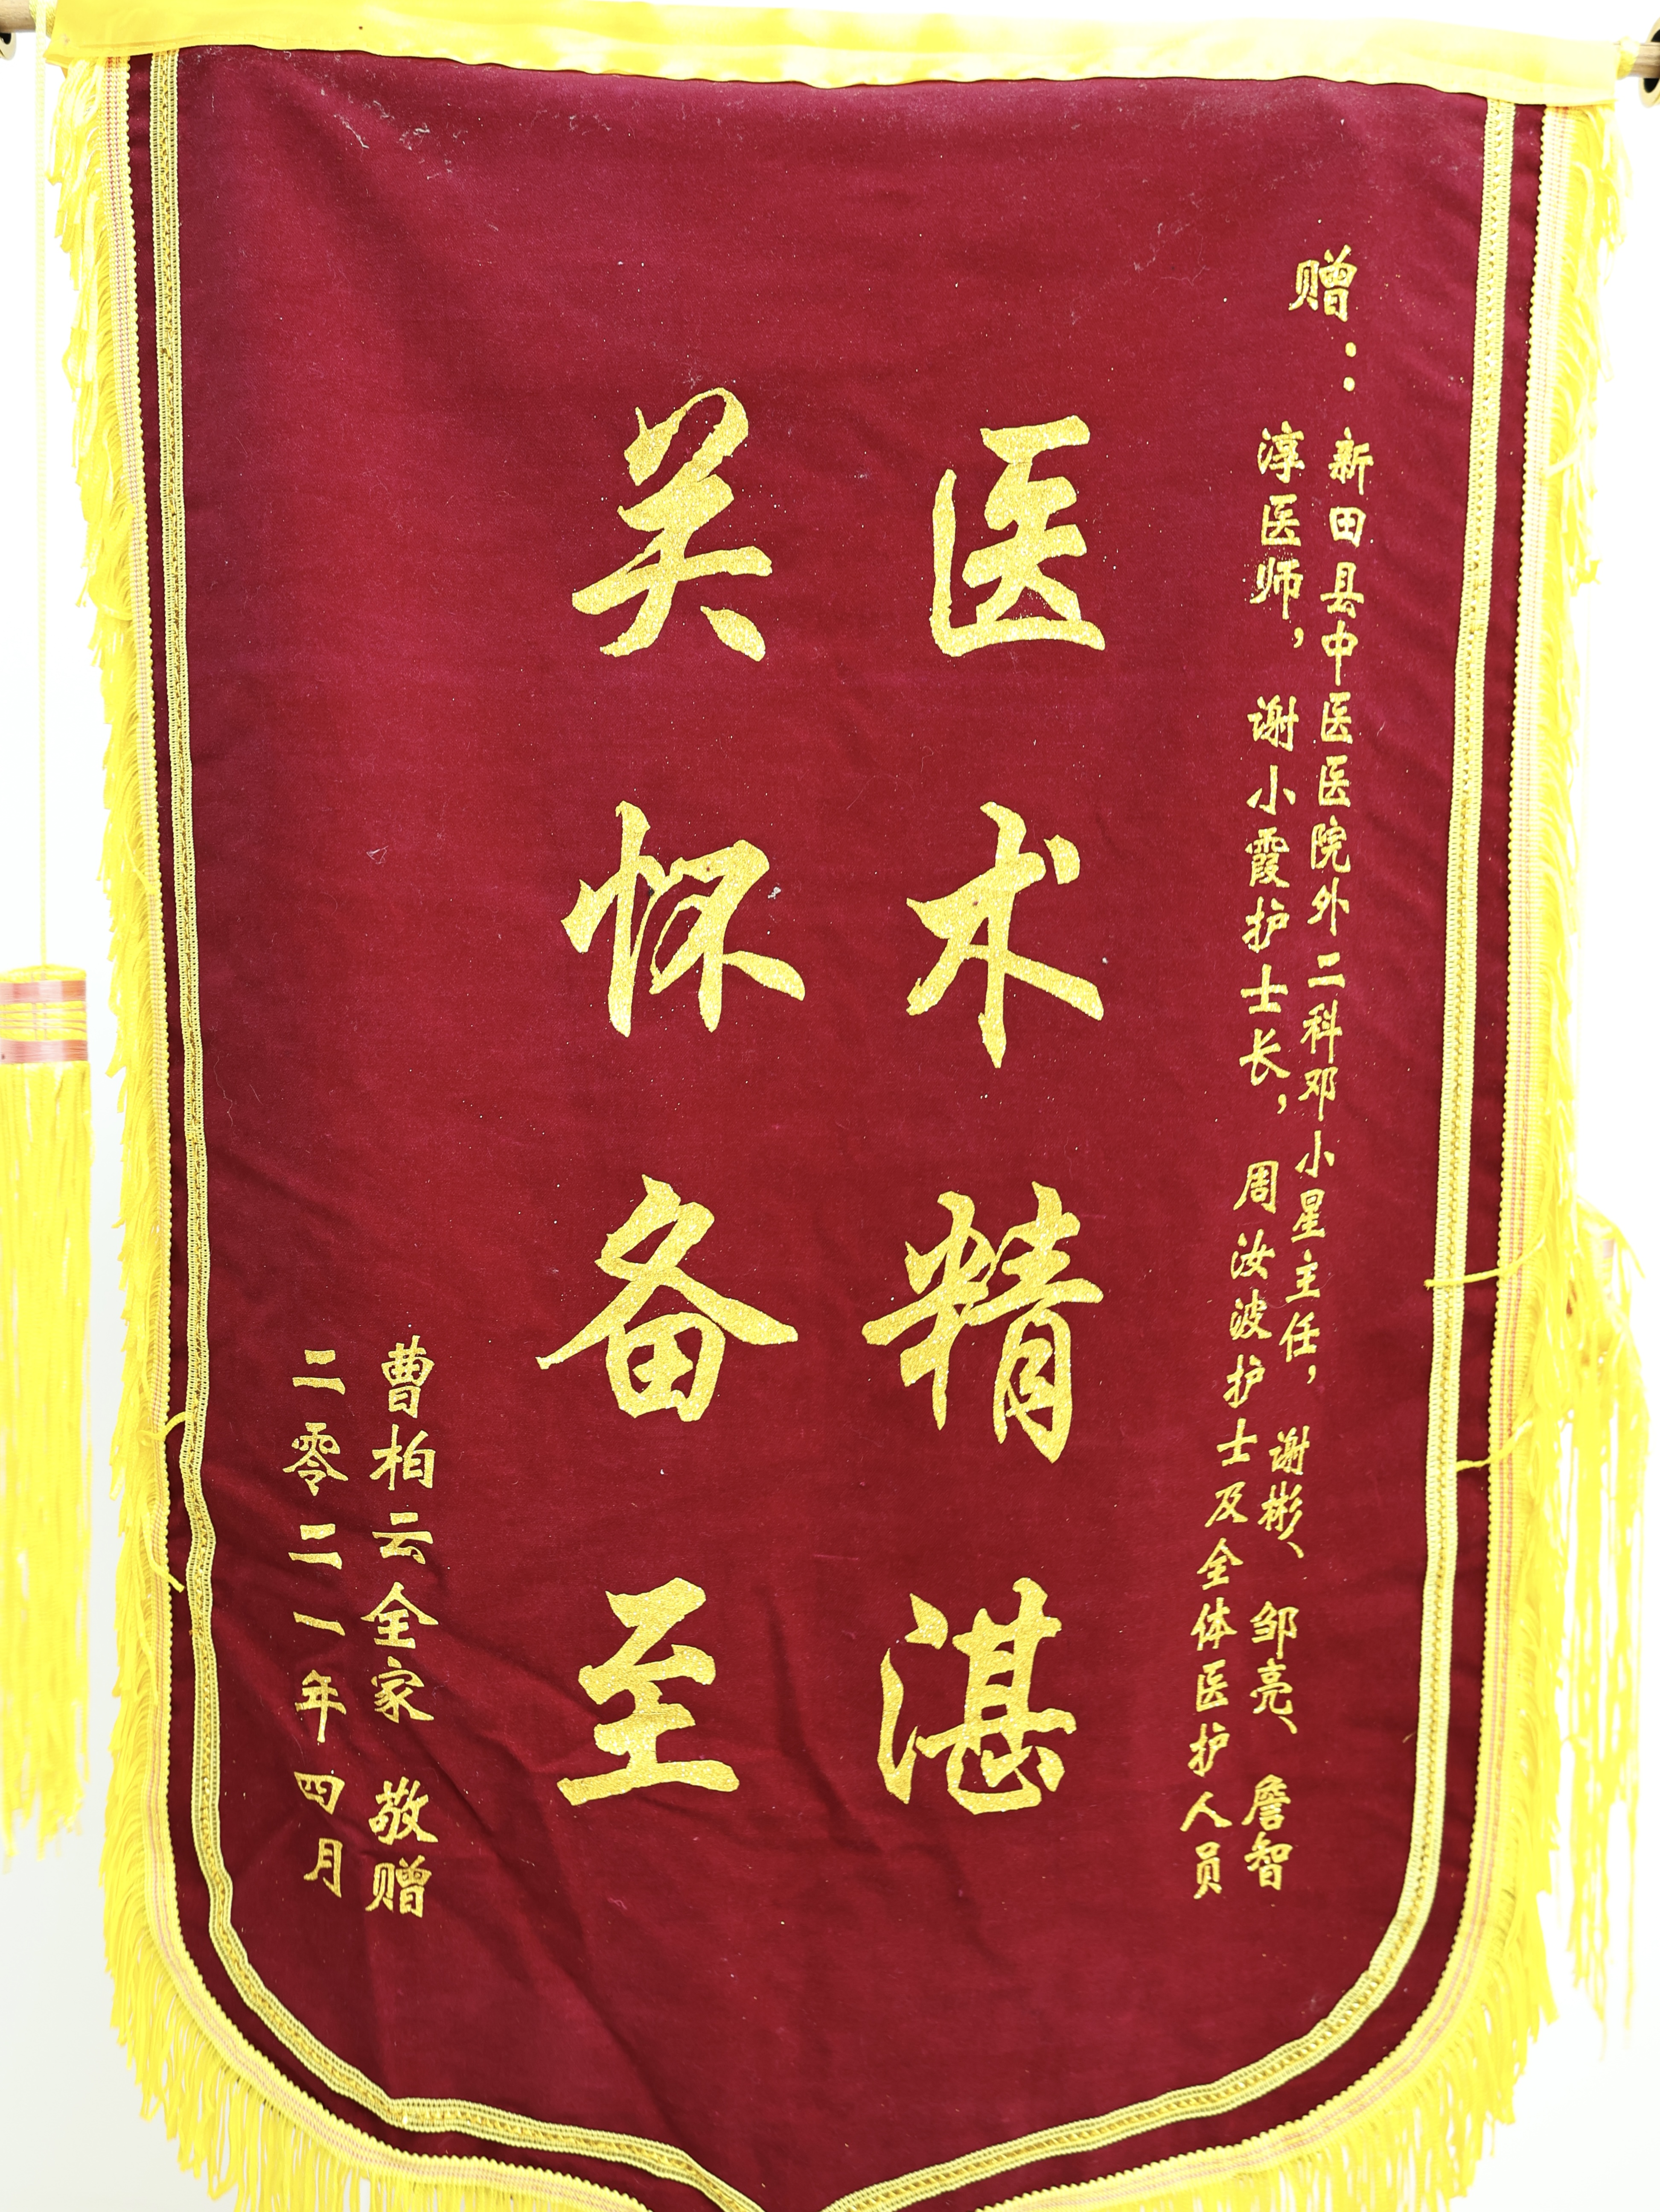 赠：
新田县中医医院外二科邓小星主任，谢彬、邹亮、詹智
淳医师，谢小霞护士长，周汝波护士及全体医护人员
医术精湛
关怀备至
曹柏云全家 敬赠
二零二一年四月